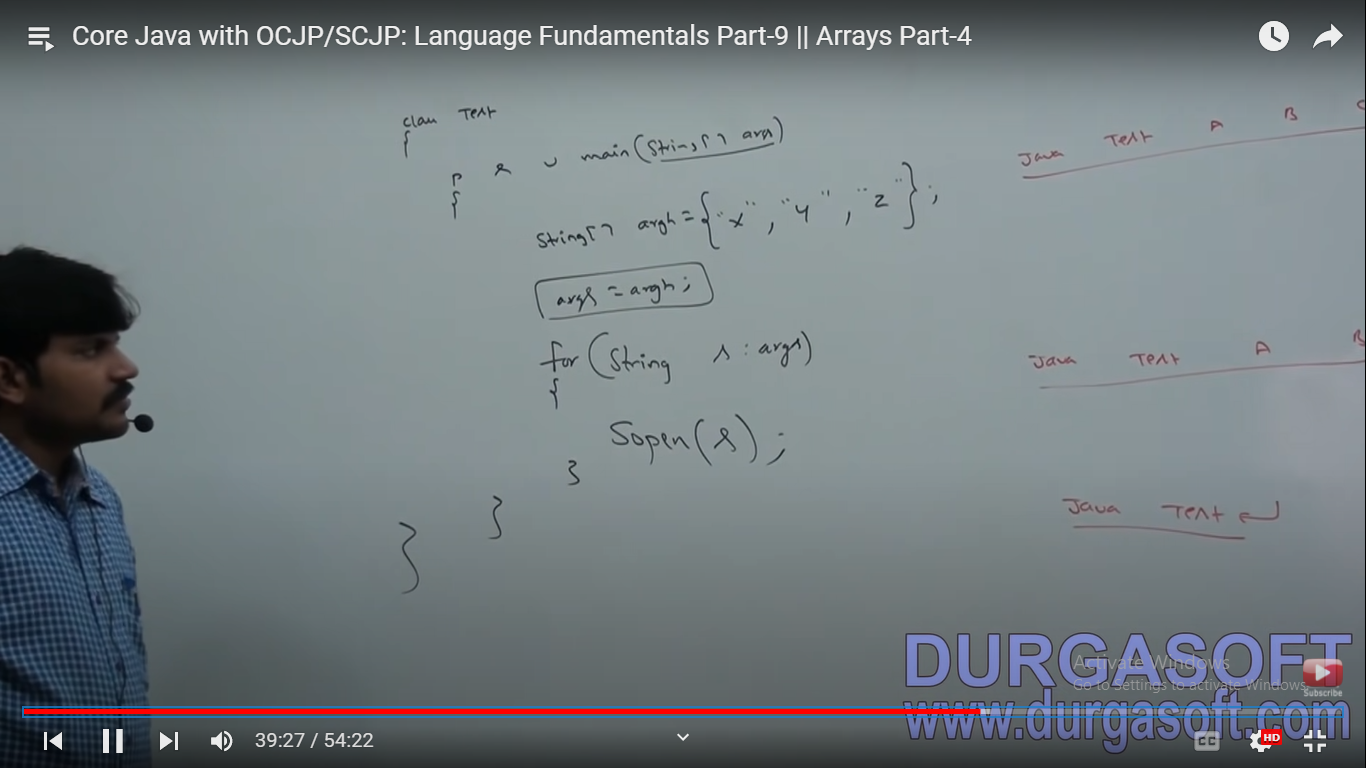 Core Java with OCJP/SCJP: Language Fundamentals Part-9 || Arrays Part-4
class Test
{
p s v main(String[] args)
{
String[] argh={"X","Y","Z"};
args=argh;
for(String s:args)
{
Sopen(s);
}
}
}
Java Test A B C
Java Test A B
Java Test ↵
DURGASOFT
www.durgasoft.com
Activate Windows
Go to Settings to activate Windows.
Subscribe
39:27 / 54:22
CC
HD